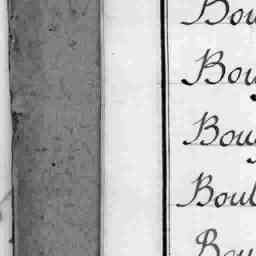 Bou
Bou
Bou
Boul
Bou